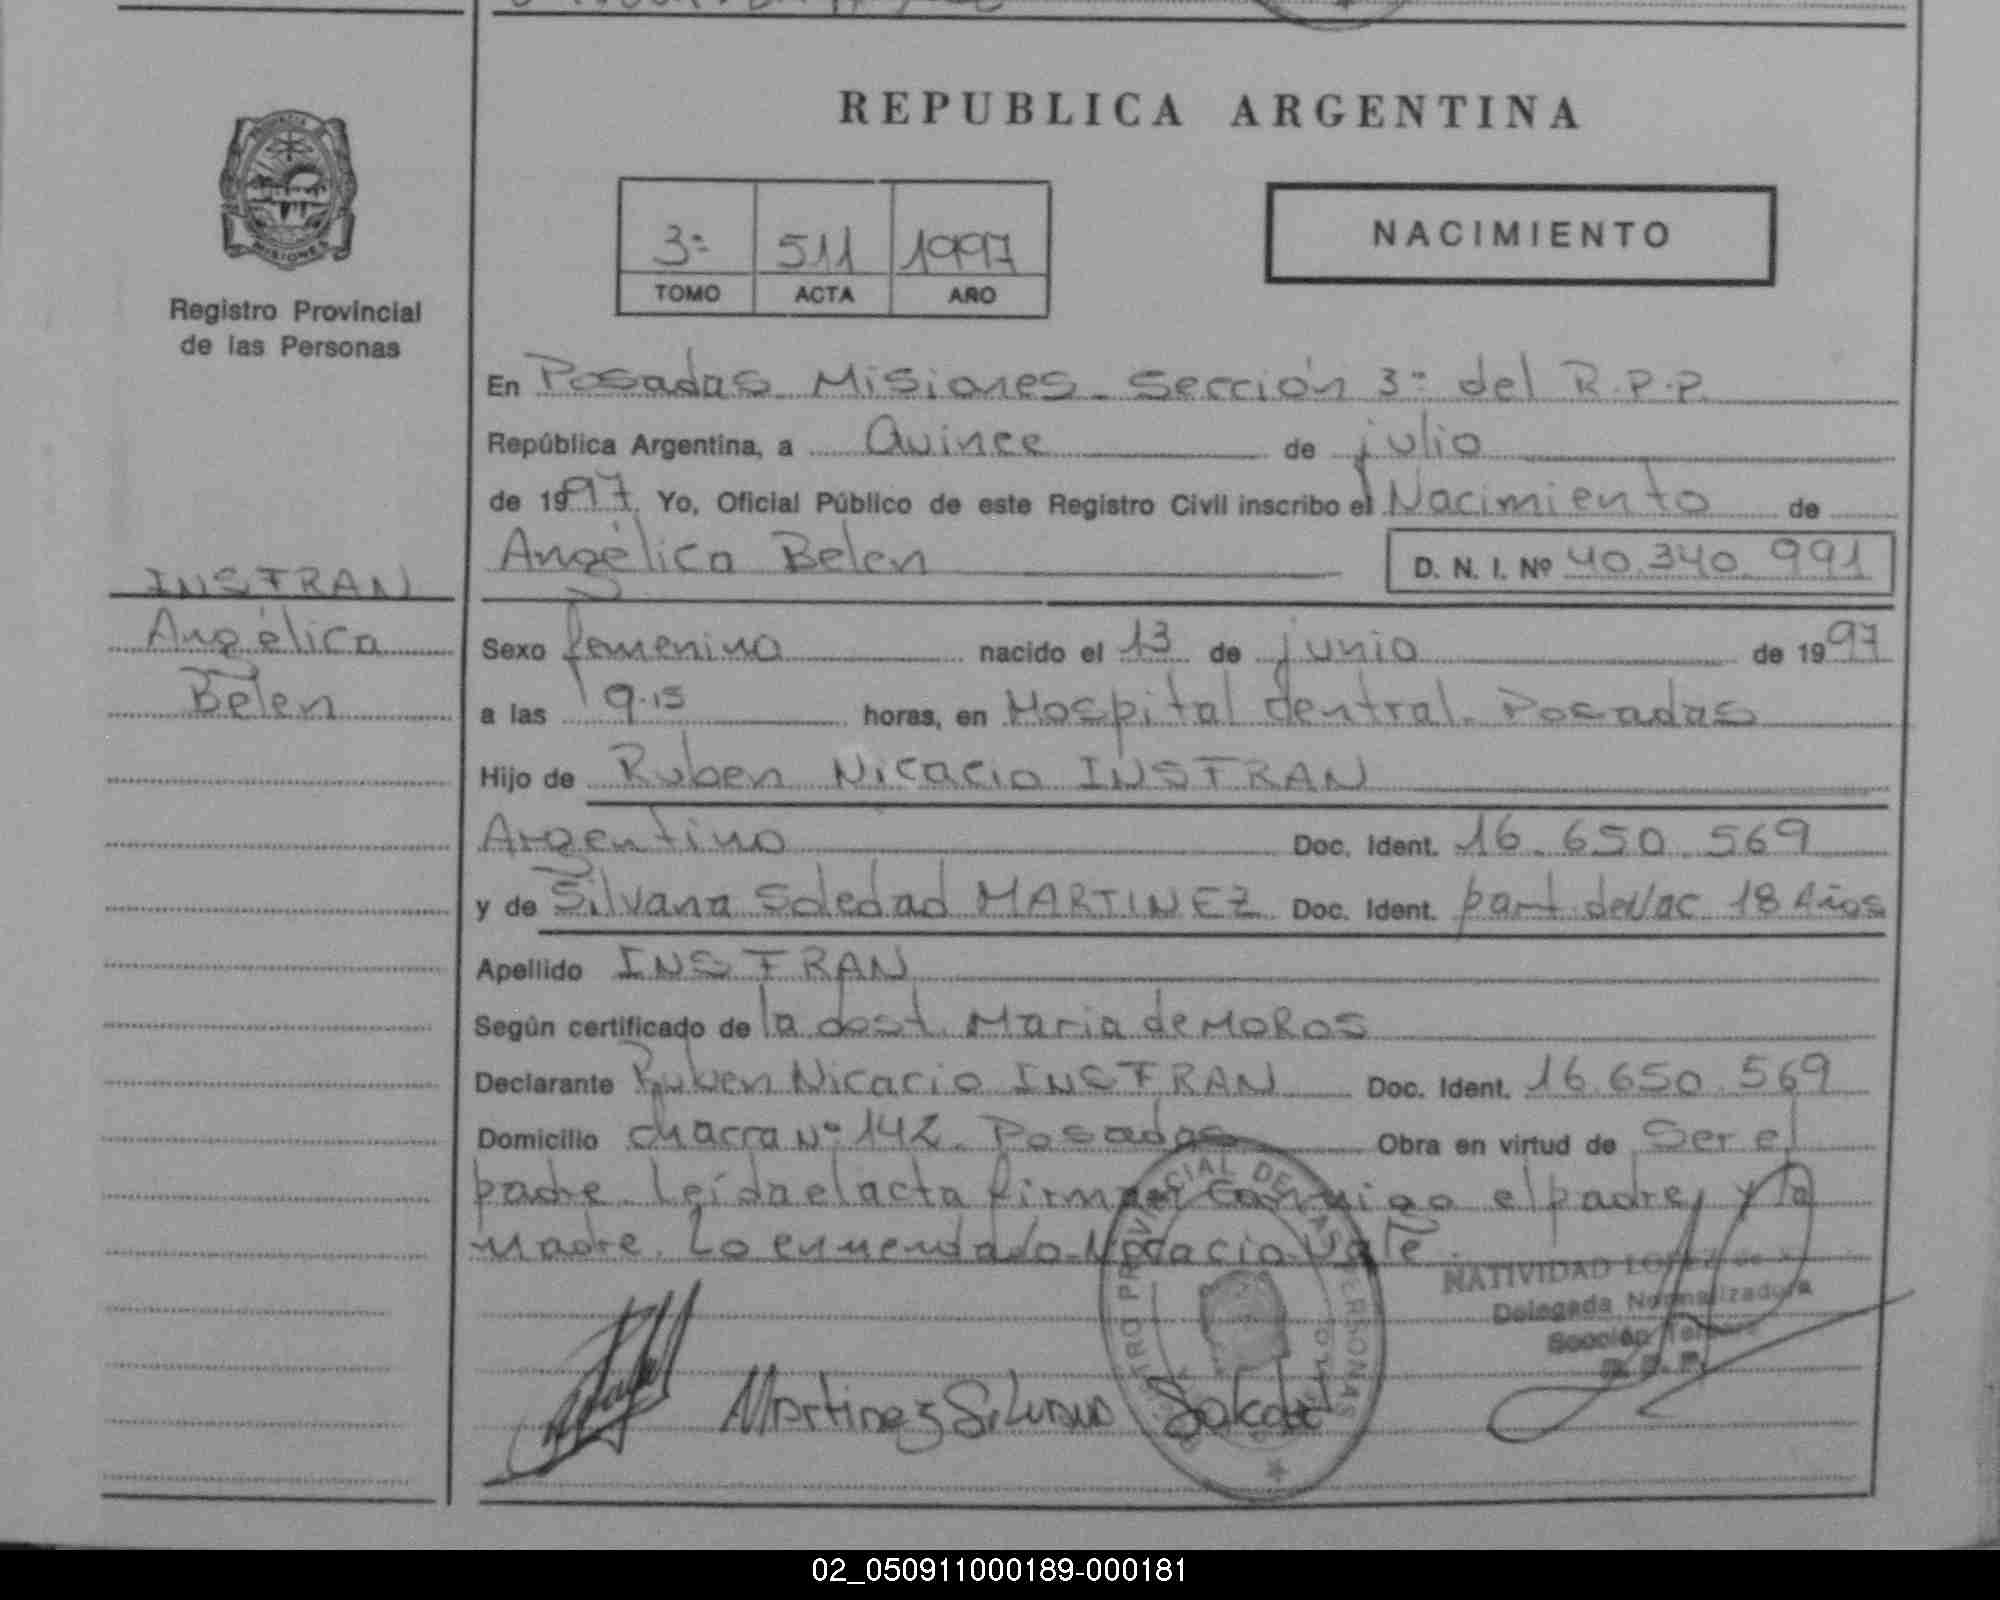 REPUBLICA ARGENTINA
MISIONES
Registro Provincial
de las Personas
3ª 511 1997
TOMO ACTA AÑO
NACIMIENTO
En Posadas Misiones - Sección 3ª del R.P.P.
República Argentina, a Quince de julio
de 1997. Yo, Oficial Público de este Registro Civil inscribo el Nacimiento de
Angélica Belen D. N. I. Nº 40.340.991
INSFRAN
Angélica
Belen
Sexo femenino nacido el 13 de junio de 1997
a las 9.15 horas, en Hospital Central. Posadas
Hijo de Ruben Nicacio INSFRAN
Argentino Doc. Ident. 16.650.569
y de Silvana Soledad MARTINEZ Doc. Ident. part. de Nac 18 Años
Apellido INSFRAN
Según certificado de la obst. Maria de MOROS
Declarante Ruben Nicacio INSFRAN Doc. Ident. 16.650.569
Domicilio chacra Nº 142 - Posadas Obra en virtud de Ser el
padre. Leída el acta firman conmigo el padre, y la
madre. Lo enmendado - Nicacio - Vale.
NATIVIDAD LOPEZ de
Delegada Normalizadora
Sección Tercera
R. P. P.
Martinez Silvana Soledad
REGISTRO PROVINCIAL DE LAS PERSONAS
02_050911000189-000181